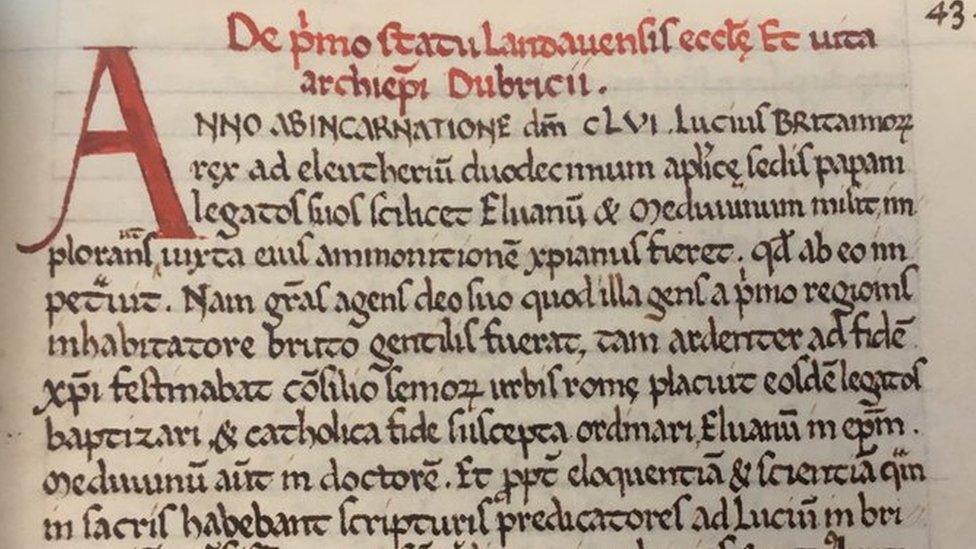 43
De p̃mo statu Landauensis eccłę Et uita
archiep̃i Dubricii.
ANNO AB INCARNATIONE dñi cLVI. Lucius BRitannoꝝ
rex ad eleutheriū duodecimum apłicę sedis papam
legatos suos scilicet Eluanū & Meduuinum misit, im
plorans, ut iuxta eius ammonitionē xp̃ianus fieret. qđ ab eo im
petᵃuit. Nam gr̃as agens deo suo quod illa gens a p̃mo regionis
inhabitatore bruto gentilis fuerat, tam ardenter ad fidē
xp̃i festinabat cōsilio senioꝝ urbis romę placuit eosdē legatos
baptizari, & catholica fide suscepta ordinari, Eluanū in ep̃m.
Meduuinū aūt in doctorē. Et ꝓpt̃ eloquentiā & scientiā qᵃm
in sacris habebant scripturis predicatores ad Luciū in bri